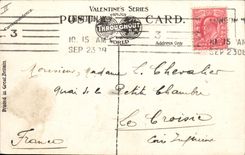 VALENTINE'S SERIES
POST CARD.
THROUGHOUT
WORLD
3
10.15 AM
SEP 23 08
Address Only
3
10.15 AM
SEP 23 08
Printed in Great Britain
Monsieur, Madame L. Chevalier
Quai de la Petite Chambre
Le Croisic
Loire Inférieure
France